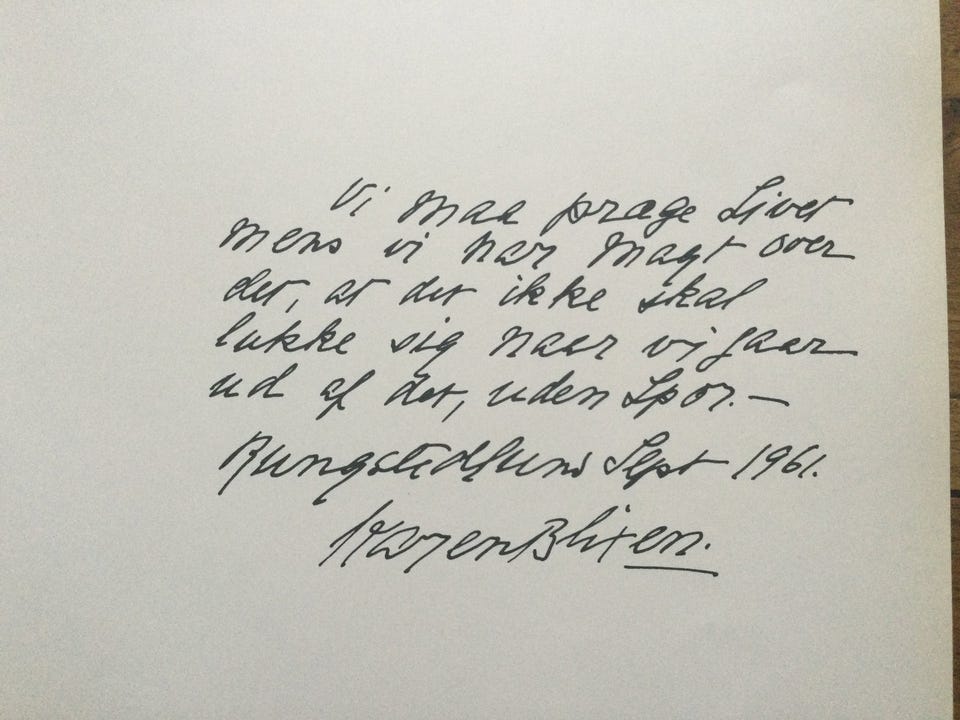 Vi maa præge Livet
mens vi har Magt over
det, at det ikke skal
lukke sig naar vi gaar
ud af det, uden Spor. —
Rungstedlund Sept 1961.
Karen Blixen.